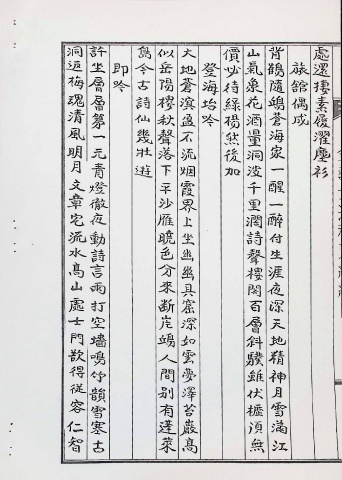 處還棲素履濯塵衫
旅舘偶成
隨鷗蒼海家一醒一醉付生涯夜深天地精神月雪滿江
山氣象花酒量洞波千里濶詩聲樓閣百層斜驥雖伏櫪須無
價必待綠楊然後加
登海坮吟
大地蒼溟盈不流烟霞界上坐幽幽具窓深如雲夢澤苔巖高
似岳陽樓秋聲落下平沙雁曉色分來斷岸鷗人間別有蓬萊
島今古詩仙幾壯遊
即吟
許坐層層第一元青燈徹夜動詩言雨打空墻鳴竹韻雪塞古
洞返梅魂清風明月文章宅流水高山處士門欲得從容仁智